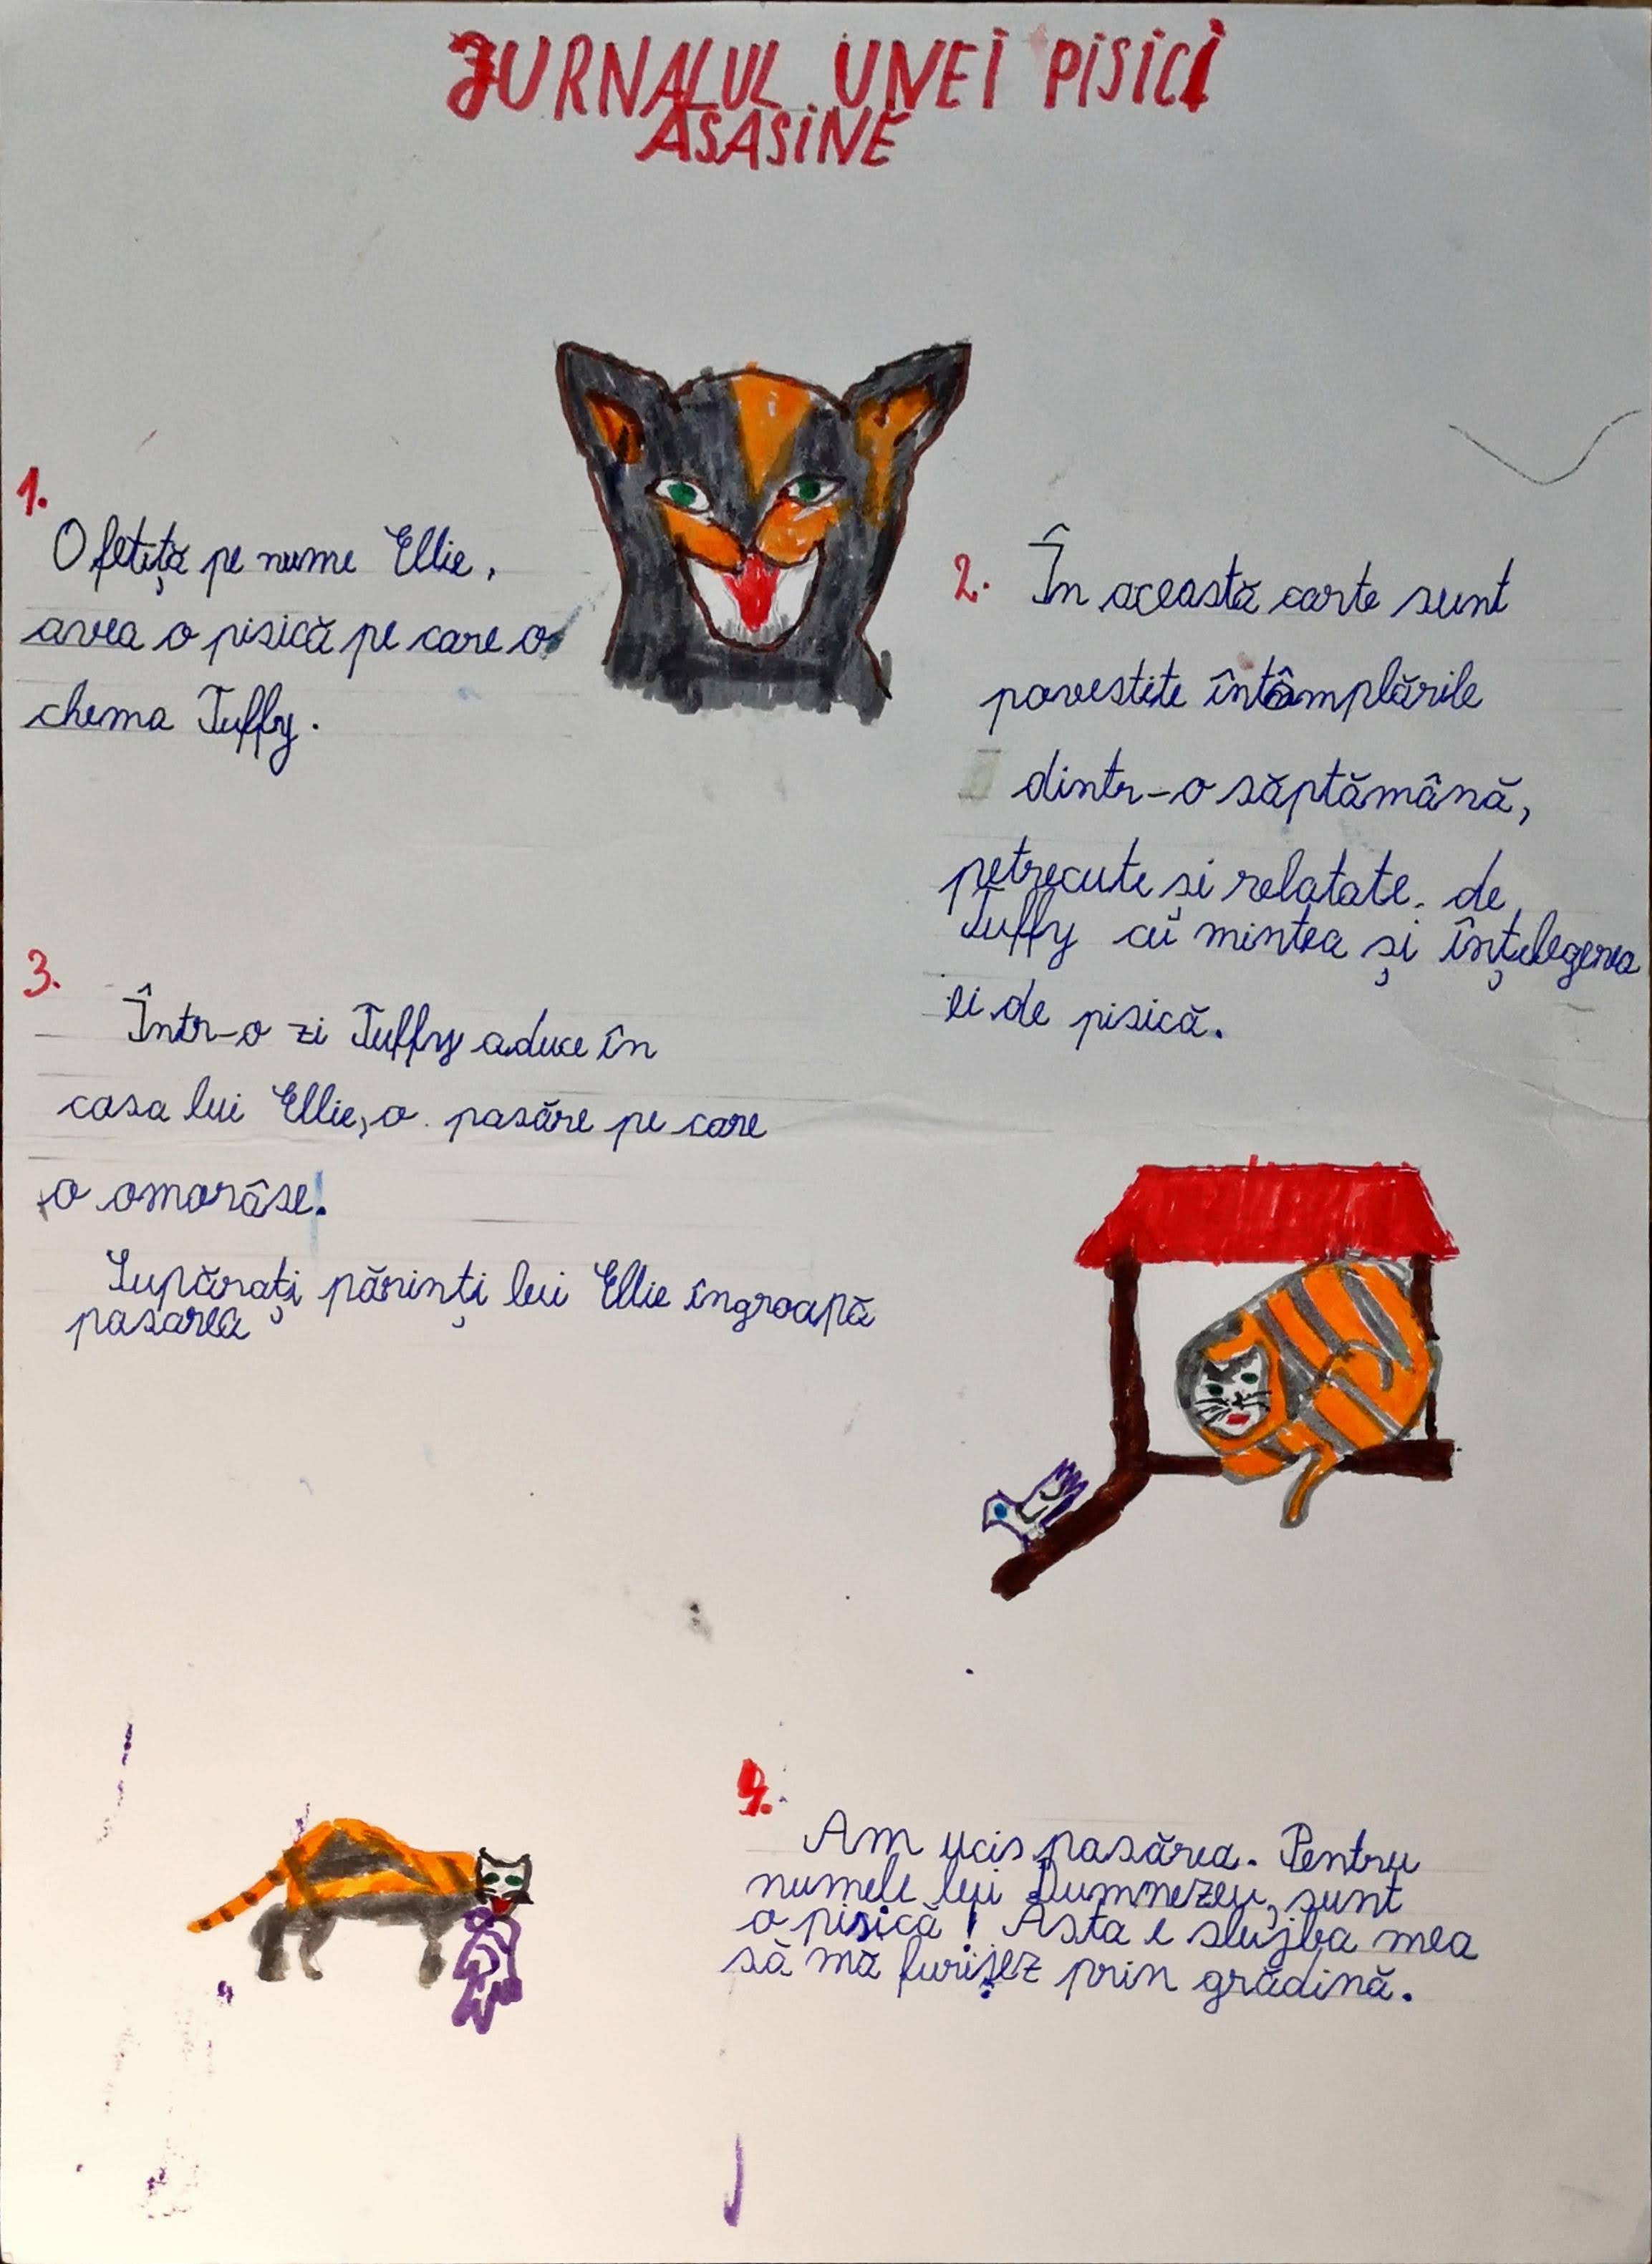 JURNALUL UNEI PISICI
ASASINE
1.
O fetiță pe nume Ellie,
avea o pisică pe care o
chema Tuffy.
2. În această carte sunt
povestite întâmplările
dintr-o săptămână,
petrecute și relatate de
Tuffy cu mintea și înțelegerea
ei de pisică.
3.
Într-o zi Tuffy aduce în
casa lui Ellie, o pasăre pe care
o omorâse!
Supărați părinți lui Ellie îngroapă
pasarea
4.
Am ucis pasărea. Pentru
numele lui Dumnezeu, sunt
o pisică! Asta e slujba mea
să mă furișez prin grădină.